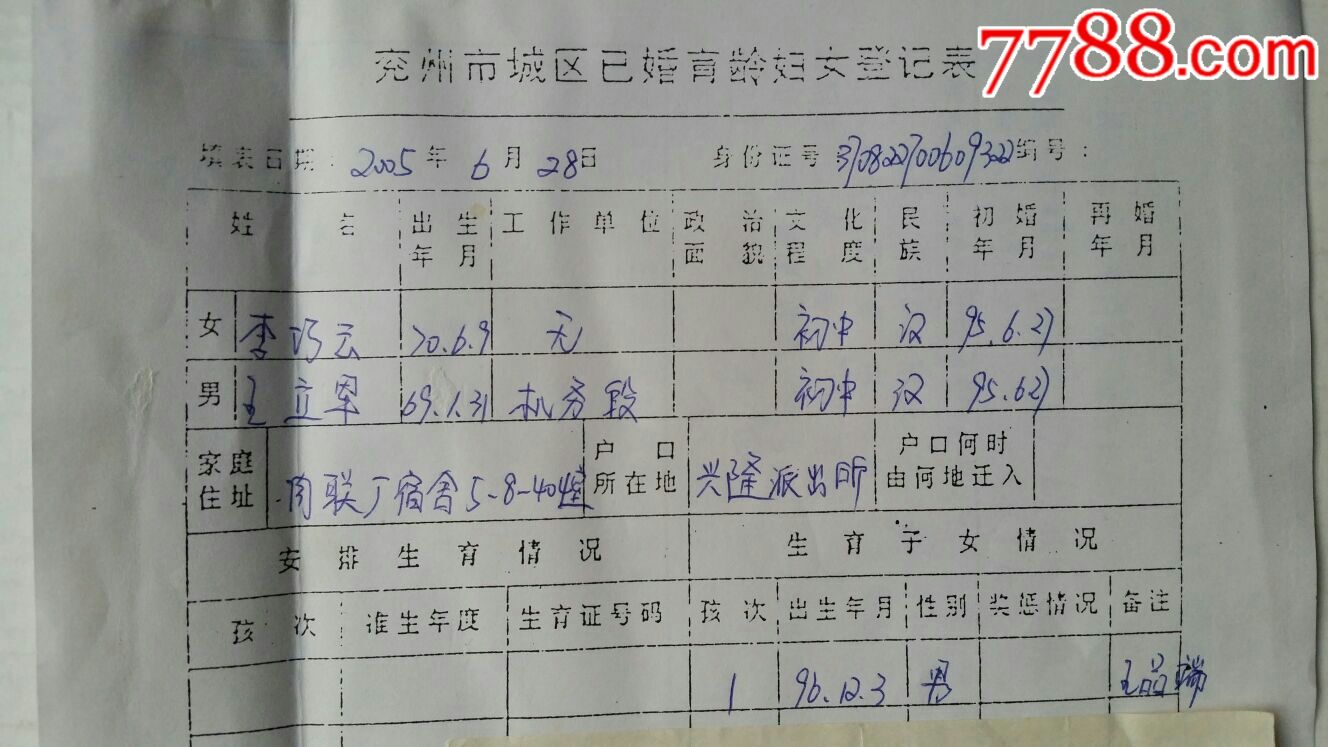 7788.com
兖州市城区已婚育龄妇女登记表
填表日期：2005年6月28日 身份证号 370822700609322 编号：
姓名 出生年月 工作单位 政治面貌 文化程度 民族 初婚年月 再婚年月
女 李巧云 70.6.9 无 初中 汉 95.6.27
男 王立军 69.1.31 机务段 初中 汉 95.6.27
家庭住址 肉联厂宿舍5-8-404 户口所在地 兴隆派出所 户口何时由何地迁入
安排生育情况 生育子女情况
孩次 准生年度 生育证号码 孩次 出生年月 性别 奖惩情况 备注
1 96.12.3 男 王晶瑞